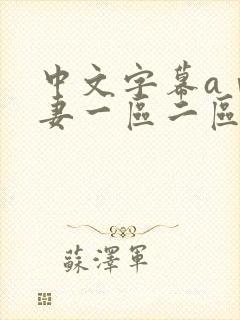 中文字幕a
妻一區二區
蘇澤軍